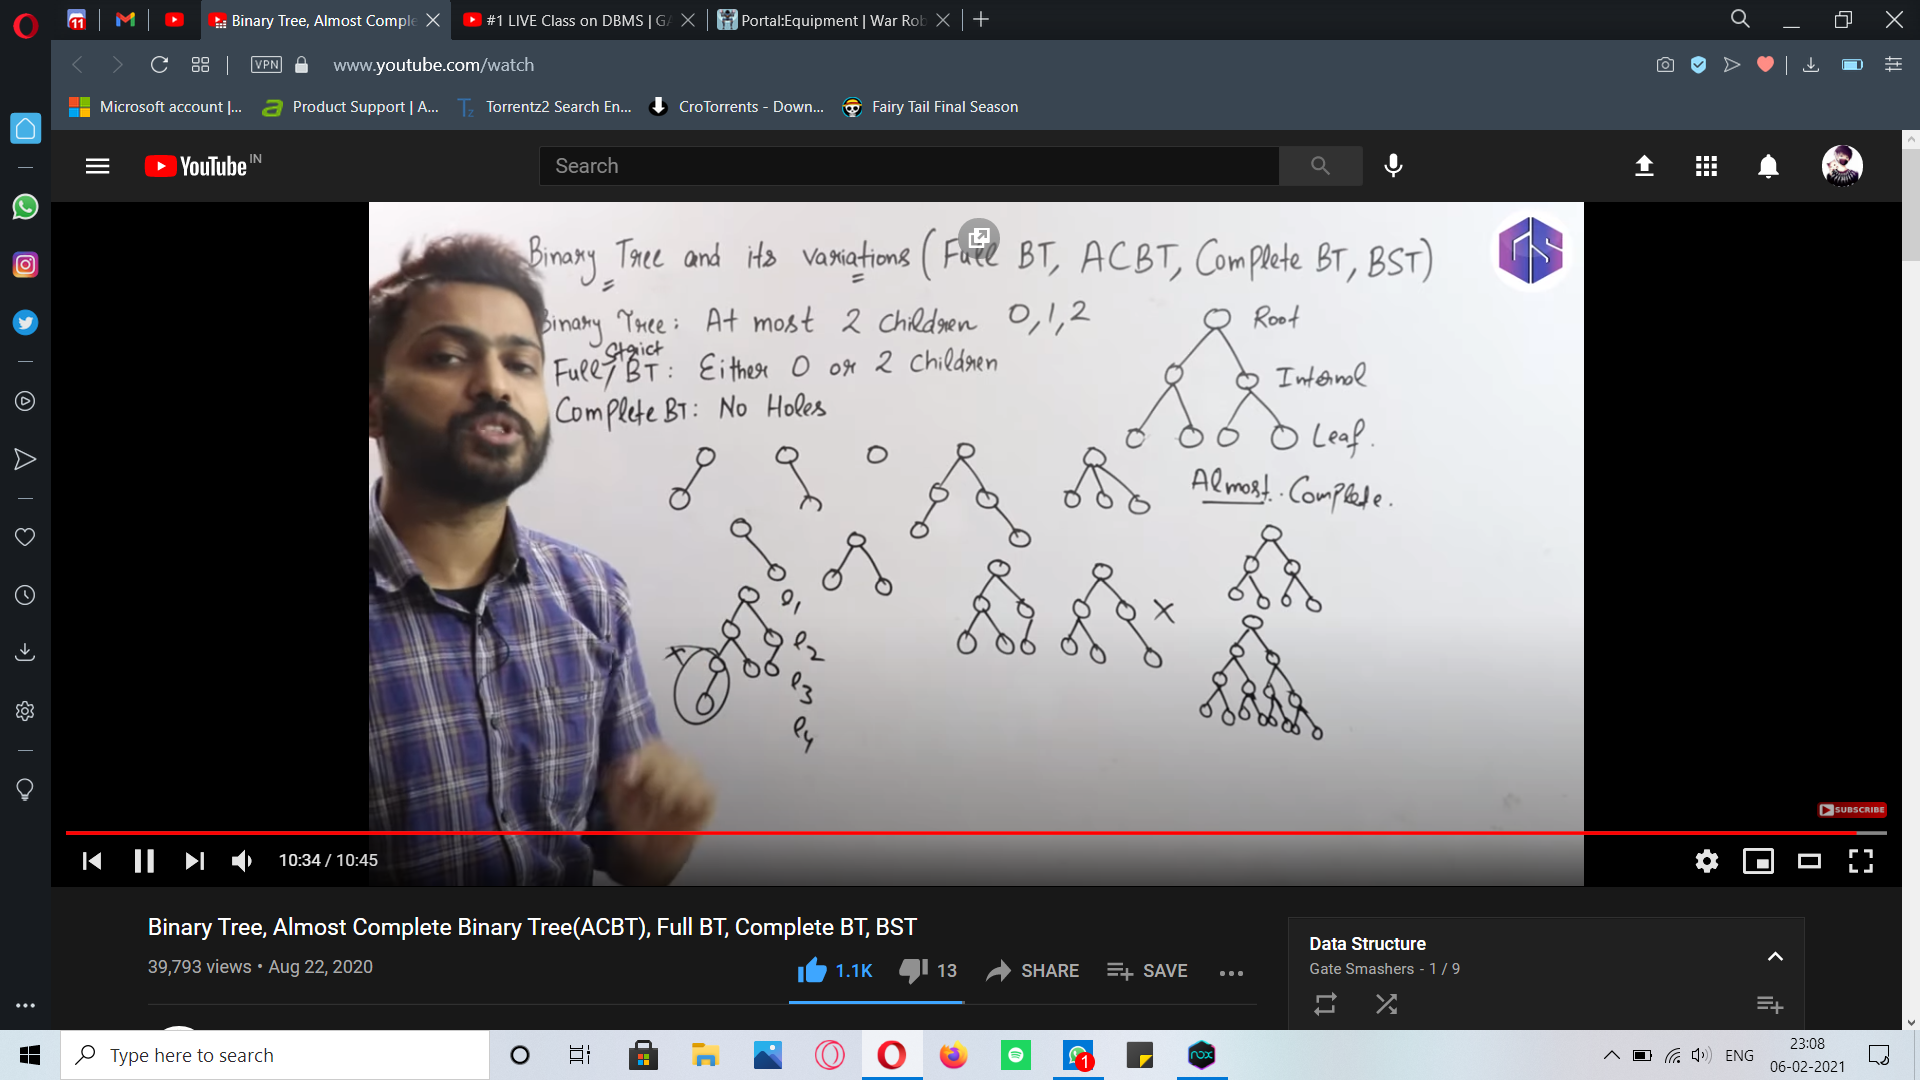 Binary Tree, Almost Comple
#1 LIVE Class on DBMS | GA
Portal:Equipment | War Rob
VPN
www.youtube.com/watch
Microsoft account |...
Product Support | A...
Torrentz2 Search En...
CroTorrents - Down...
Fairy Tail Final Season
YouTube IN
Search
Binary Tree and its variations (Full BT, ACBT, Complete BT, BST)
Binary Tree: At most 2 children 0,1,2
Root
Strict
Full/BT: Either 0 or 2 children
Internal
Complete BT: No Holes
Leaf.
Almost. Complete.
l1
l2
l3
l4
GS
SUBSCRIBE
10:34 / 10:45
Binary Tree, Almost Complete Binary Tree(ACBT), Full BT, Complete BT, BST
39,793 views • Aug 22, 2020
1.1K
13
SHARE
SAVE
Data Structure
Gate Smashers - 1 / 9
Type here to search
nox
1
ENG
23:08
06-02-2021